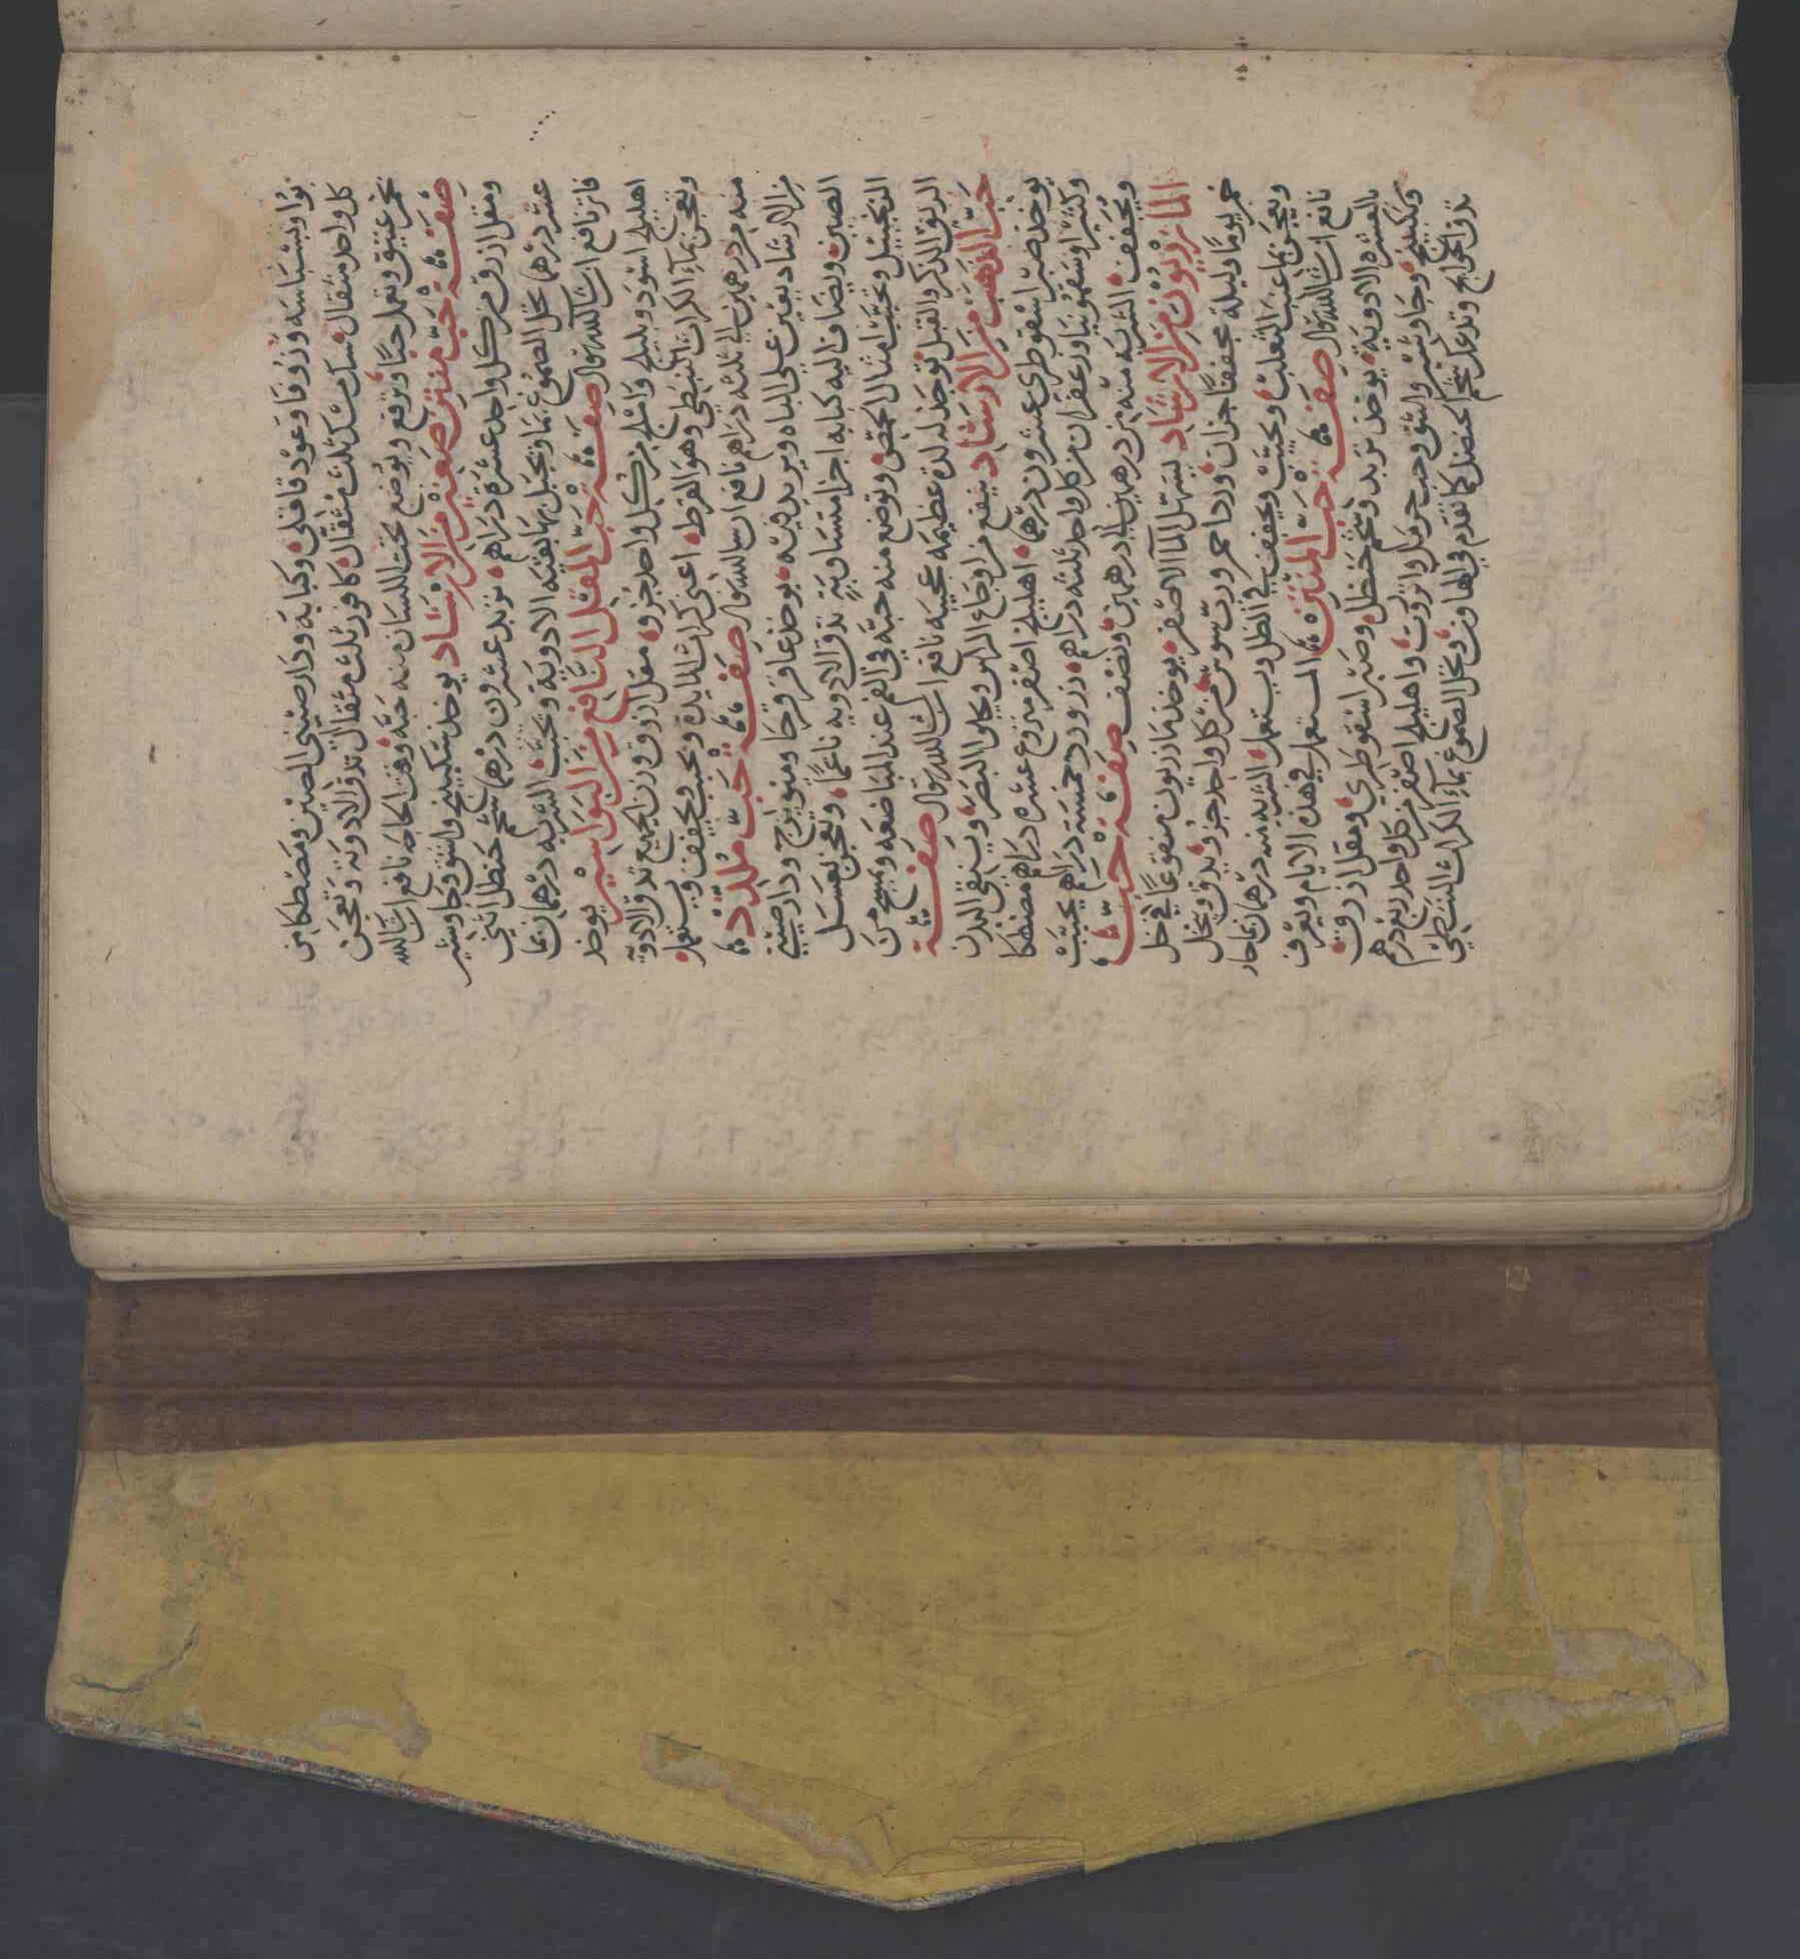 بوا وبسباسه وزرقا وعود قاقلى وكبابه ودارصينى الصين ومصطكا من
كل واحد مثقال مسك ثلث مثقال كافور ثلث مثقال تدق الادوية وتعجن
بخمر عتيق وتعمل حبا وترفع ويوضع تحت اللسان منه حبة وقت الحاجه نافع ان شا الله
صفة حب منتن صغير من الارشاد يوخذ سكبينج واشق وجاوشير
ومقل ازرق من كل واحد عشرة دراهم تربد عشرون درهم شحم حنظل اثنى
عشر درهما تحل الصموغ بما وتجبل بها بقية الادوية وتحبب الشربه درهمان بما
فاتر نافع ان شا الله تعالى صفة حب المقل النافع من البواسير يوخذ
اهليلج اسود وبليلج واملج من كل واحد جزو مقل ازرق وزن الجميع تدق الادوية
وتعجن بماء الكراث النبطى وهو القرط اعنى كراث المايدة وتحبب وتجفف ويستعمل
منه من درهمين الى ثلثه دراهم نافع ان شا الله تعالى صفة حب ملذذ
من الارشاد يعين على الباه ويزيد فيه يوخذ عاقرقرحا وميويزج ودارصينى
الصين ويضاف اليه كبابه اجزا متساوية تدق الادويه ناعما وتعجن بعسل
الزنجبيل وتحبب امثال الحمص وتوضع منه حبة في الفم عند المباضعه ويمسح من
الريق الذكر والقبل توجد له لذة عظيمه عجيبه نافع ان شا الله تعالى صفة
حب الذهب من الارشاد ينفع من اوجاع الراس ويجلو البصر وينقى البدن
يوخذ صبر اسقوطرى عشرون درهما اهليلج اصفر منزوع عشره دراهم مصطكا
وكثيرا وسقمونيا وزعفران من كل واحد ثلثه دراهم زرورد خمسة دراهم يحبب
ويجفف الشربه منه من درهمين الى درهمين ونصف صفة حب
المازريون من الارشاد يسهل الما الاصفر يوخذ مازريون منقوعا في خل
خمر يوما وليلة مجففا جزان ورد احمر ورب سوس من كل واحد جزو يدق وينخل
ويعجن بما عنب الثعلب ويحبب ويجفف في الظل ويستعمل الشربه منه درهمان بما حار
نافع ان شا الله تعالى صفة حب المنتن المستعمل في هذه الايام ويعرف
بالعشرة الادوية يوخذ تربد وشحم حنظل وصبر اسقوطرى ومقل ازرق
وسكبينج وجاوشير واشق وحب حرمل وانزروت واهليلج اصفر من كل واحد ربع درهم
تدق الحوايج وتدعك شحم الحنظل كما تقدم في الهاون وتحل الصموغ بماء الكراث النبطى